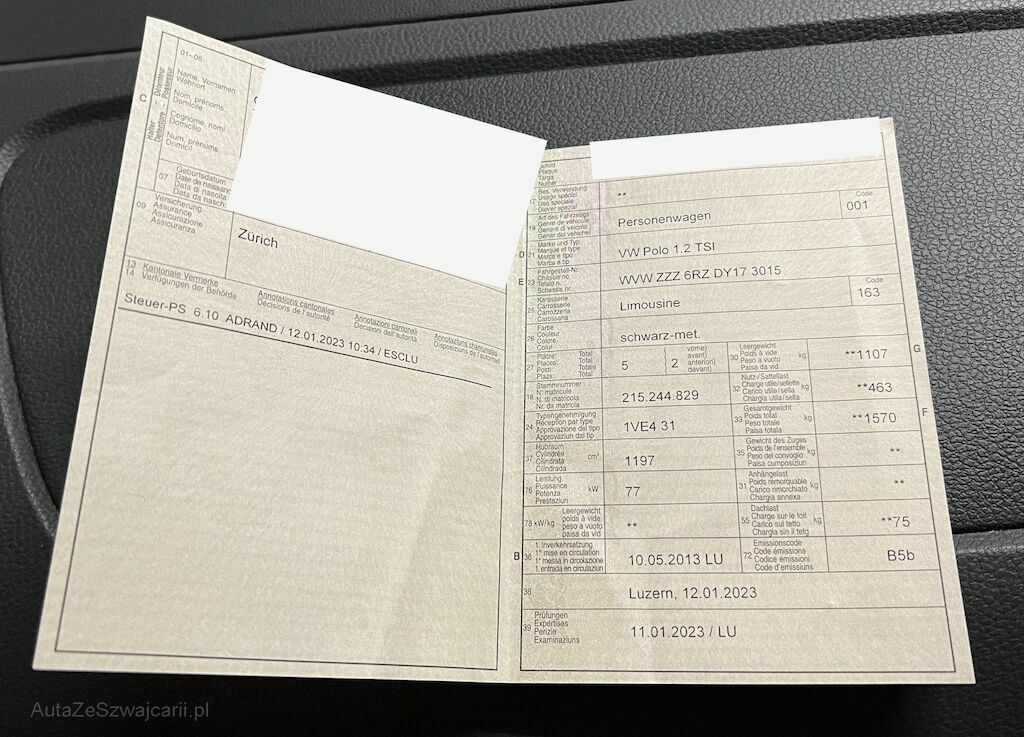 01–06
C
Halter - Détenteur
Detentore - Possessur
Name, Vornamen
Wohnort
Nom, prénoms
Domicile
Cognome, nomi
Domicilio
Num, prenums
Domicil
07
Geburtsdatum
Date de naissance
Data di nascita
Data da nasch.
09
Versicherung
Assurance
Assicurazione
Assicuranza
Zürich
13 Kantonale Vermerke
14 Verfügungen der Behörde
Annotations cantonales
Décisions de l'autorité
Annotazioni cantonali
Decisioni dell'autorità
Annotaziuns chantunalas
Disposiziuns da l'autoritad
Steuer-PS 6.10 ADRAND / 12.01.2023 10:34 / ESCLU
Schild
Plaque
Targa
Numer
Bes. Verwendung
Usage spécial
Uso speciale
Diever spezial
**
19
Art des Fahrzeugs
Genre de véhicule
Genere di veicolo
Gener dal vehichel
Personenwagen
Code
001
D 21
Marke und Typ
Marque et type
Marca e tipo
Marca e tip
VW Polo 1.2 TSI
E 23
Fahrgestell-Nr.
Châssis no
Telaio n.
Schassis nr.
WVW ZZZ 6RZ DY17 3015
25
Karosserie
Carrosserie
Carrozzeria
Carossaria
Limousine
Code
163
26
Farbe
Couleur
Colore
Colur
schwarz-met.
27
Plätze: Total
Places: Total
Posti: Totale
Plazs: Total
5
2
vorne)
avant)
anteriori)
davant)
30
Leergewicht
Poids à vide
Peso a vuoto
Paisa da vid
kg
**1107
G
18
Stammnummer
N° matricule
N. di matricola
Nr. da matricla
215.244.829
32
Nutz-/Sattellast
Charge utile/sellette
Carico utile/sella
Chargia utila/sella
kg
**463
24
Typengenehmigung
Réception par type
Approvazione del tipo
Approvaziun dal tip
1VE4 31
33
Gesamtgewicht
Poids total
Peso totale
Paisa totala
kg
**1570
F
37
Hubraum
Cylindrée
Cilindrata
Cilindrada
cm³
1197
35
Gewicht des Zuges
Poids de l'ensemble
Peso del convoglio
Paisa cumposiziun
kg
**
76
Leistung
Puissance
Potenza
Prestaziun
kW
77
31
Anhängelast
Poids remorquable
Carico rimorchiato
Chargia annexa
kg
**
78 kW/kg
Leergewicht
poids à vide
peso a vuoto
paisa da vid
**
55
Dachlast
Charge sur le toit
Carico sul tetto
Chargia sin il tetg
kg
**75
B 36
1. Inverkehrsetzung
1re mise en circulation
1a messa in circolazione
1. entrada en circulaziun
10.05.2013 LU
72
Emissionscode
Code émissions
Codice emissioni
Code d'emissiuns
B5b
38
Luzern, 12.01.2023
39
Prüfungen
Expertises
Perizie
Examinaziuns
11.01.2023 / LU
AutaZeSzwajcarii.pl